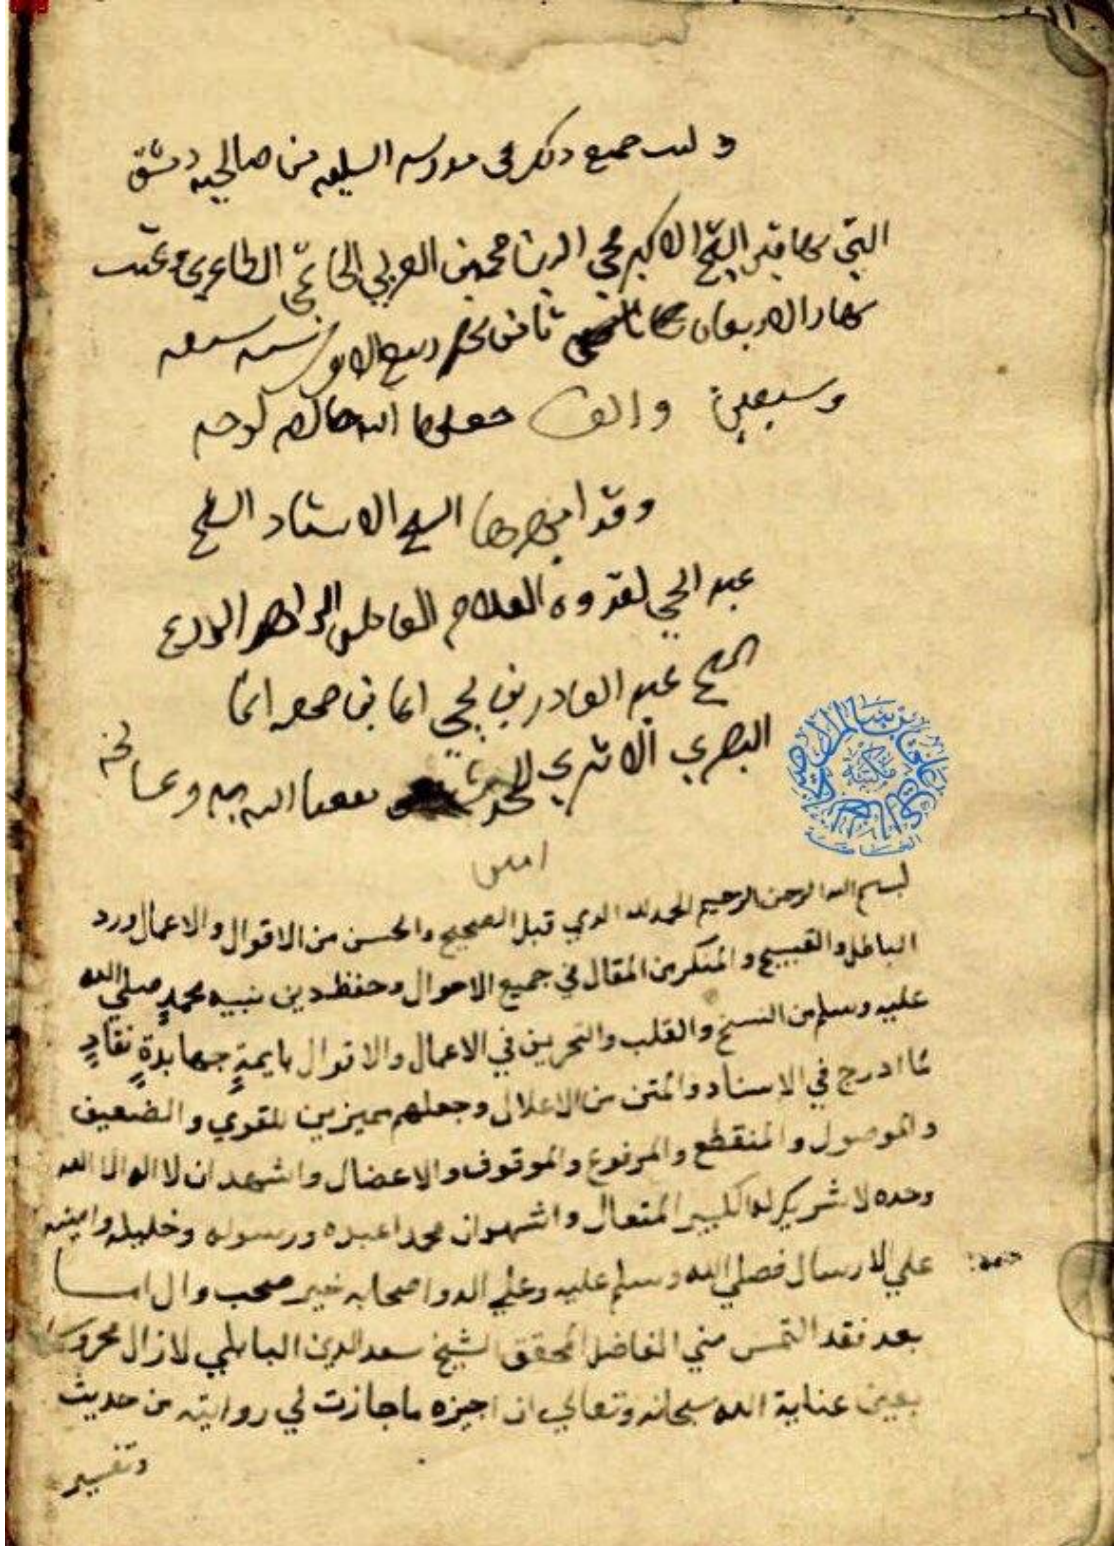 وكتب جميع ذلك في مدرسة السليمية من صالحية دمشق
التي بها قبر الشيخ الاكبر محي الدين محمد بن العربي الحاتمي الطاعري وتمت
نهار الاربعاء ثاني ربيع الاول سنة سبعة
وسبعين والف جعلها الله خالصة لوجهه
وقد الشيخ الاستاد الشيخ
عبد الحي لقدوة العلام العامل الزاهد الورع
الشيخ عبد القادر بن يحيي
البصري الاثري نفعنا الله به وعـ
امين
بسم الله الرحمن الرحيم الحمد لله الذي قبل الصحيح والحسن من الاقوال والاعمال ورد
الباطل والقبيح والمنكر من المقال في جميع الاحوال وحفظ دين نبيه محمد صلي الله
عليه وسلم من النسخ والقلب والتحريف في الاعمال والاقوال بايمةٍ جهابدةٍ نقادٍ
لما ادرج في الاسناد والمتن من الاعلال وجعلهم مميزين للقوي والضعيف
والموصول والمنقطع والمرفوع والموقوف والاعضال واشهد ان لا اله الا الله
وحده لا شريك له الكبير المتعال واشهد ان محمدا عبده ورسوله وخليله وامينه
علي الارسال فصلي الله وسلم عليه وعلي اله واصحابه خير صحب وال امـــا
بعد فقد التمس مني الفاضل المحقق الشيخ سعد الدين البابلي لازال محروسا
بعين عناية الله سبحانه وتعالي ان اجيزه ما جازت لي روايته من حديث
وتفسير